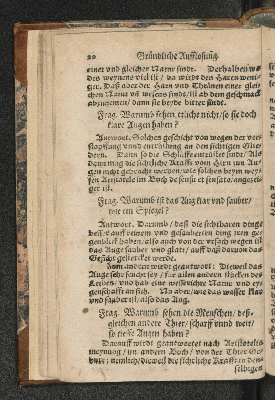 20 Gründliche Aufflösung
einer vnd gleicher Natur sinde. Derhalben wo
des weynens viel ist / da wirds des Harns weni-
ger. Daß aber der Harn vnd Thränen einer glei-
chen Natur vñ wesens sinde / ist ab dem geschmack
abzunemen / dann sie beyde bitter sind.
Frag. Warumb sehen etliche nicht / so sie doch
klare Augen haben?
Antwort. Solches geschicht von wegen der ver-
stopffung vnnd der
Dann so die Schlaff sind / Als
dann mag die sichtliche Krafft vom Hirn zun Au-
gen nicht gebracht werden / wie solches beym wey-
sen Aristotele im Buch de sensu & sensato / angezei-
get ist.
Frag. Warumb ist das Aug klar vnd sauber /
wie ein Spiegel?
Antwort. Darumb / daß die sichtbaren dinge
besser auff einem vnd gesäuberten ding
haben / also auch von der vrsach wegen ist
das Auge sauber vnd glatt / auff daß daruon das
Gesicht werde.
Zum andern wirdt geantwort: Dieweil das
Auge sehr feucht sey / für allen andern stücken des
Leibes / vnd hab eine wesserichte Natur vnd ey-
genschafft an sich. Nu aber / wie das wasser klar
vnd sauber ist / also das Aug.
Frag. Warumb sehen die Menschen / deß-
gleichen andere Thier / scharff vnnd weit /
so tieffe Augen haben?
Darauff wirdt geantwortet nach Aristoteles
meynung / im andern Buch / von der Thier Ge-
nemlich / dieweil die sichtliche Krafft in den-
selbigen